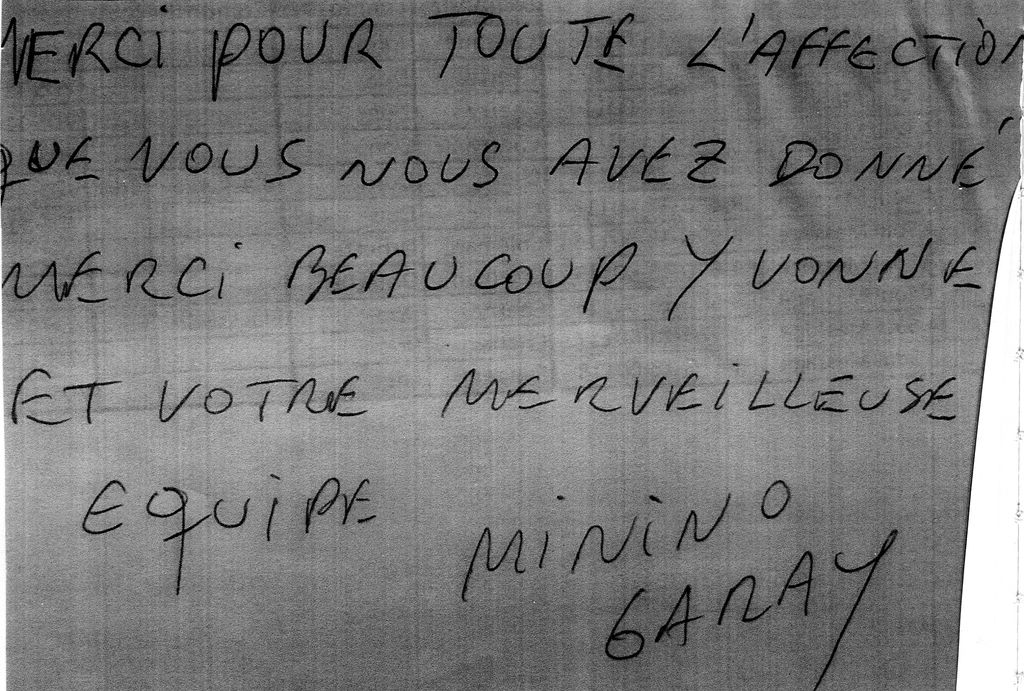 MERCi POUR TOUTE L'AFFECTiON
QUE VOUS NOUS AVEZ DONNÉ
MERCi BEAUCOUP YVONNE
ET VOTRE MERVEiLLEUSE
EQUiPE
MiNiNO
GARAY